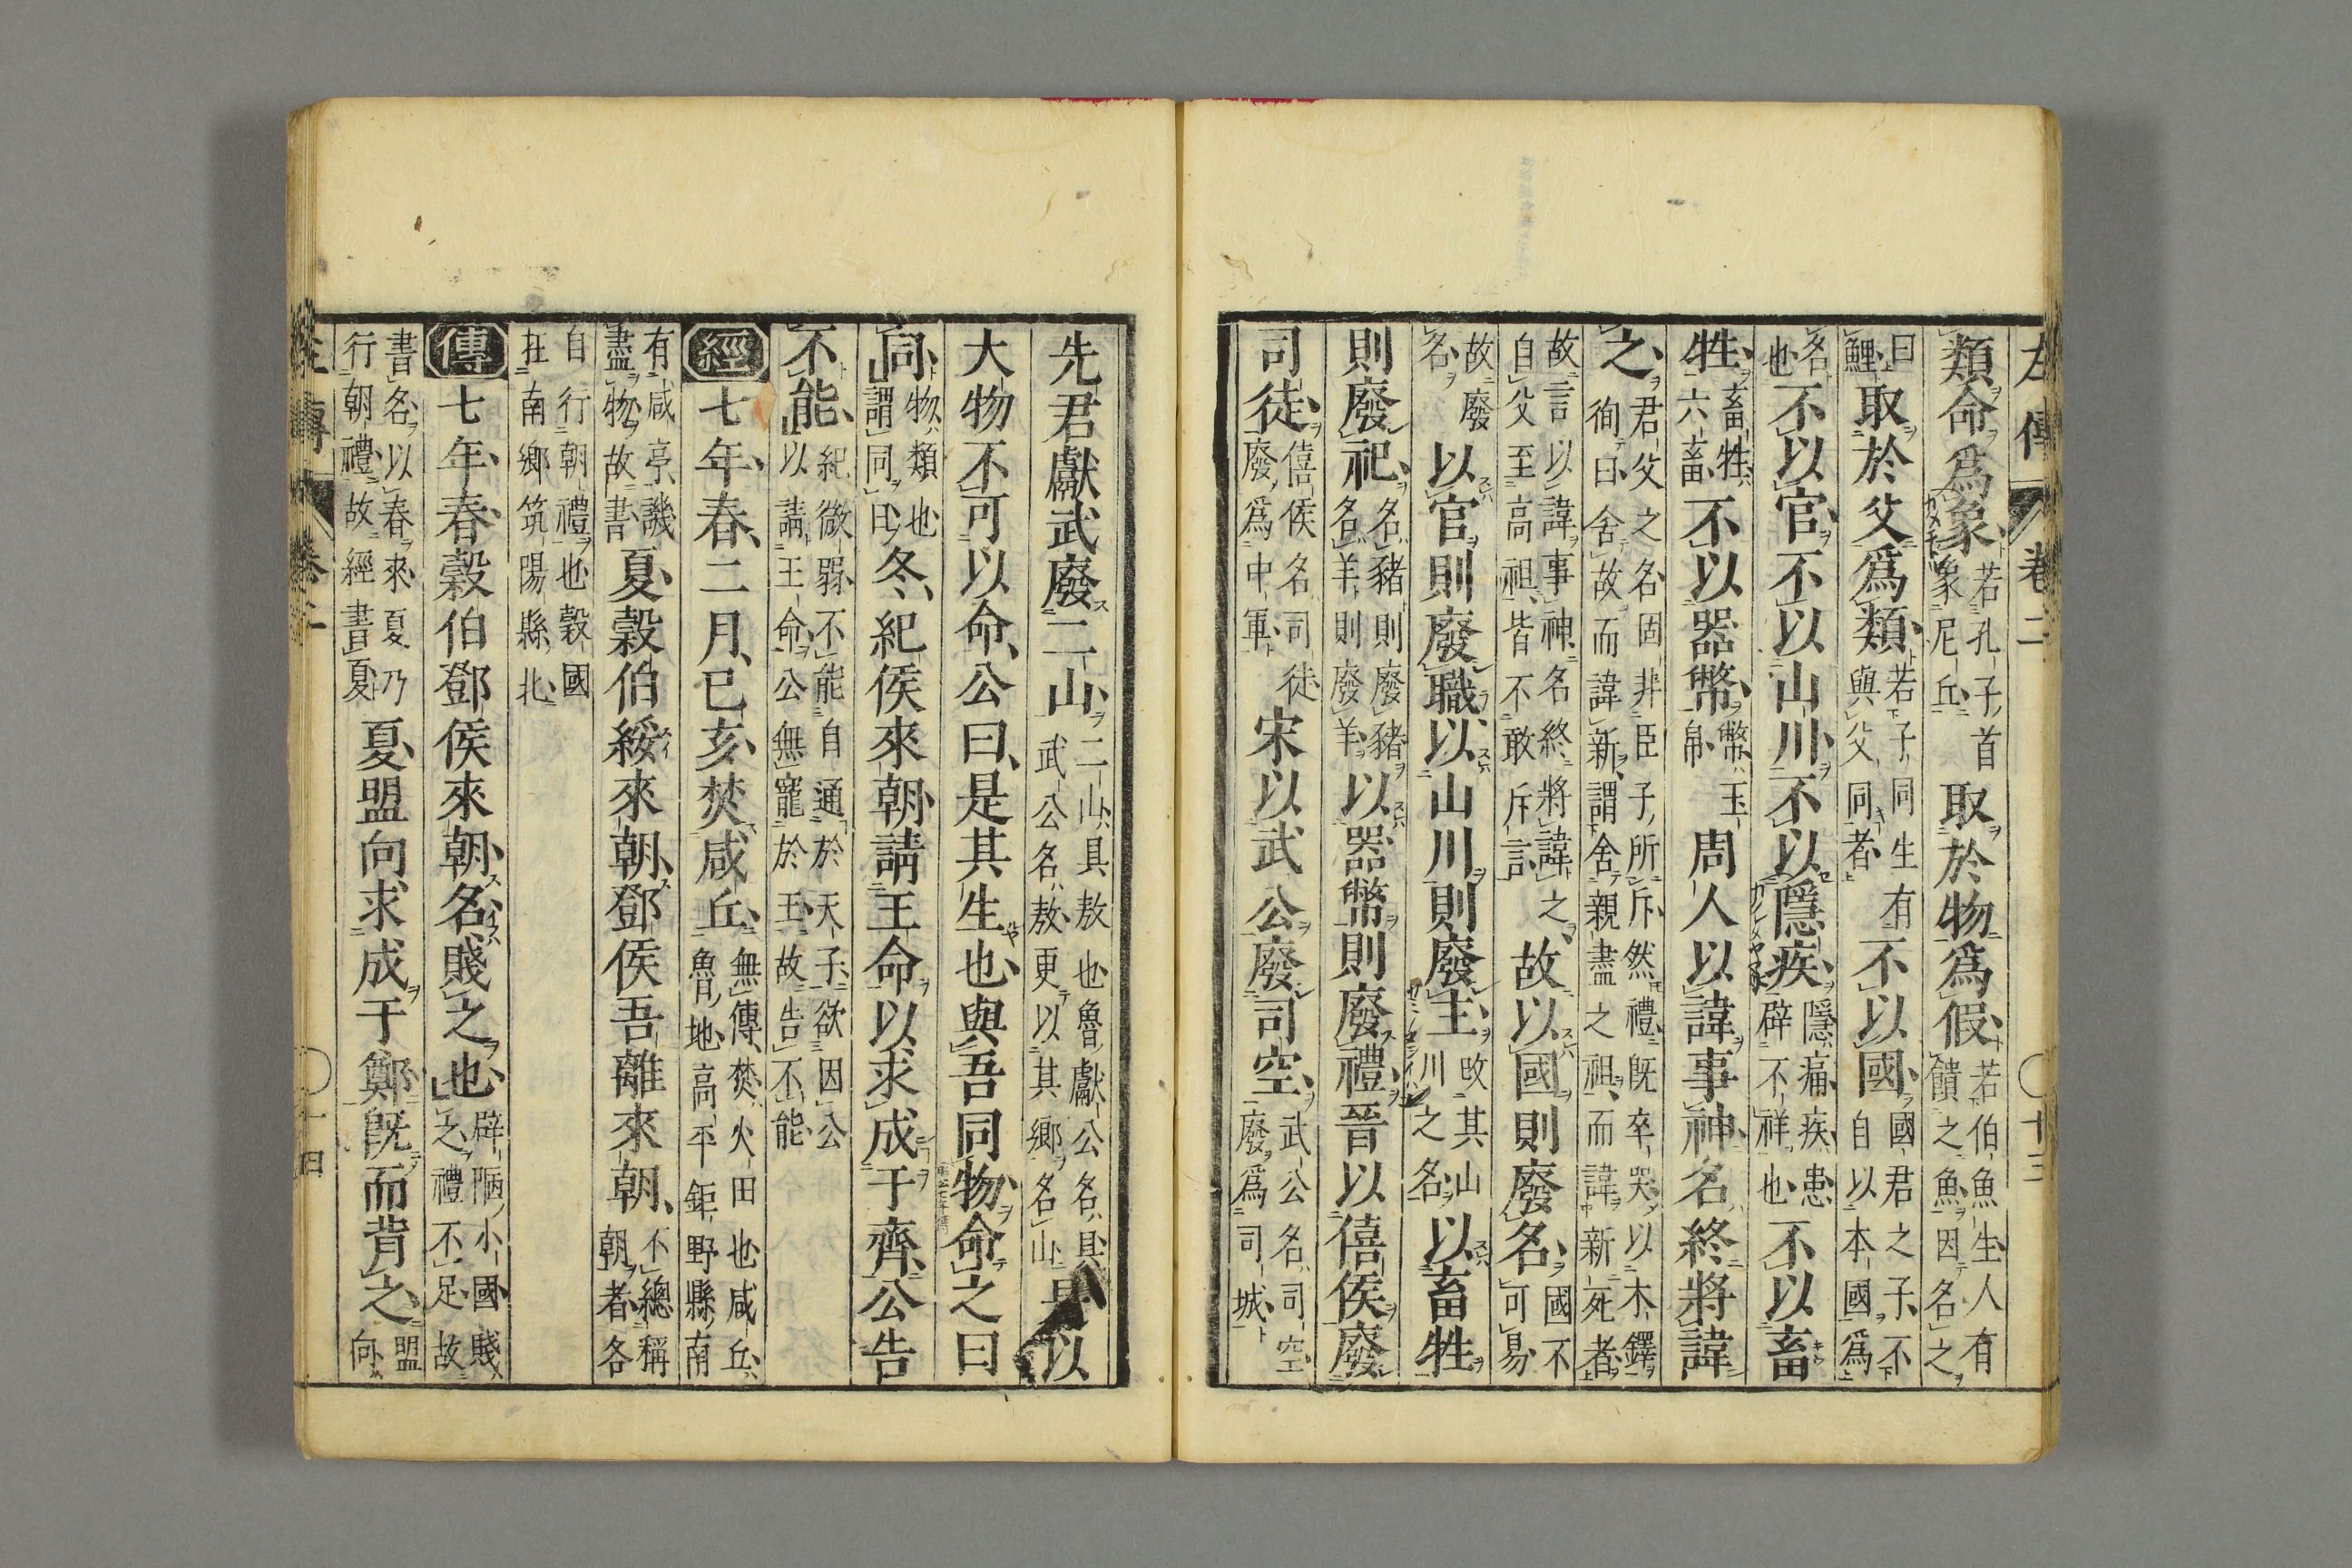 左傳 卷二 十三
類命爲象若孔子首象尼丘取於物爲假若伯魚生人有饋之魚因名之
曰鯉取於父爲類若子同生有與父同者不以國國君之子不自以本國爲
名也不以官不以山川不以隱疾隱痛疾患辟不祥也不以畜
牲畜牲六畜不以器幣幣玉帛周人以諱事神名終將諱
之君父之名固非臣子所斥然禮既卒哭以木鐸徇曰舍故而諱新謂舍親盡之祖而諱新死者
故言以諱事神名終將諱之自父至高祖皆不敢斥言故以國則廢名國不可易
故廢名以官則廢職以山川則廢主改其山川之名以畜牲
則廢祀名豬則廢豬名羊則廢羊以器幣則廢禮晉以僖侯廢
司徒僖侯名司徒廢爲中軍宋以武公廢司空武公名司空廢爲司城
先君獻武廢二山二山具敖也魯獻公名具武公名敖更以其鄉名山是以
大物不可以命公曰是其生也與吾同物命之曰
同物類也謂同日冬紀侯來朝請王命以求成于齊公告
不能紀微弱不能自通於天子欲因公以請王命公無寵於王故告不能
經七年春二月已亥焚咸丘無傳焚火田也咸丘魯地高平鉅野縣南
有咸亭譏盡物故書夏穀伯綏來朝鄧侯吾離來朝不總稱朝者各
自行朝禮也穀國在南鄉筑陽縣北
傳七年春穀伯鄧侯來朝名賤之也辟陋小國賤之禮不足故
書名以春來夏乃行朝禮故經書夏夏盟向求成于鄭既而背之盟向
左傳 卷二 十四